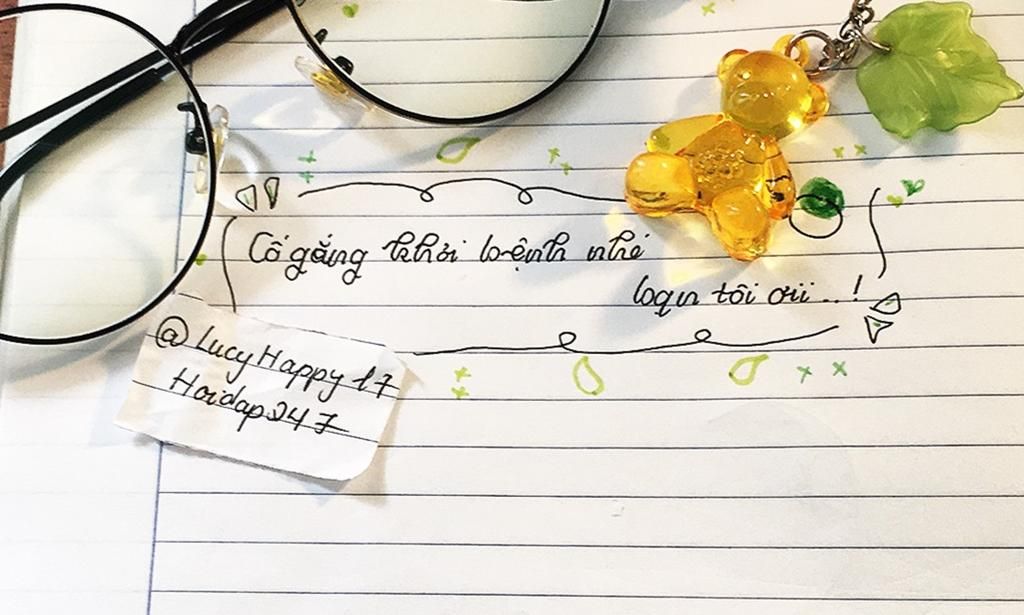 Cố gắng khỏi bệnh nhé
bạn tôi ơii...!
@LucyHappy17
Hoidap247